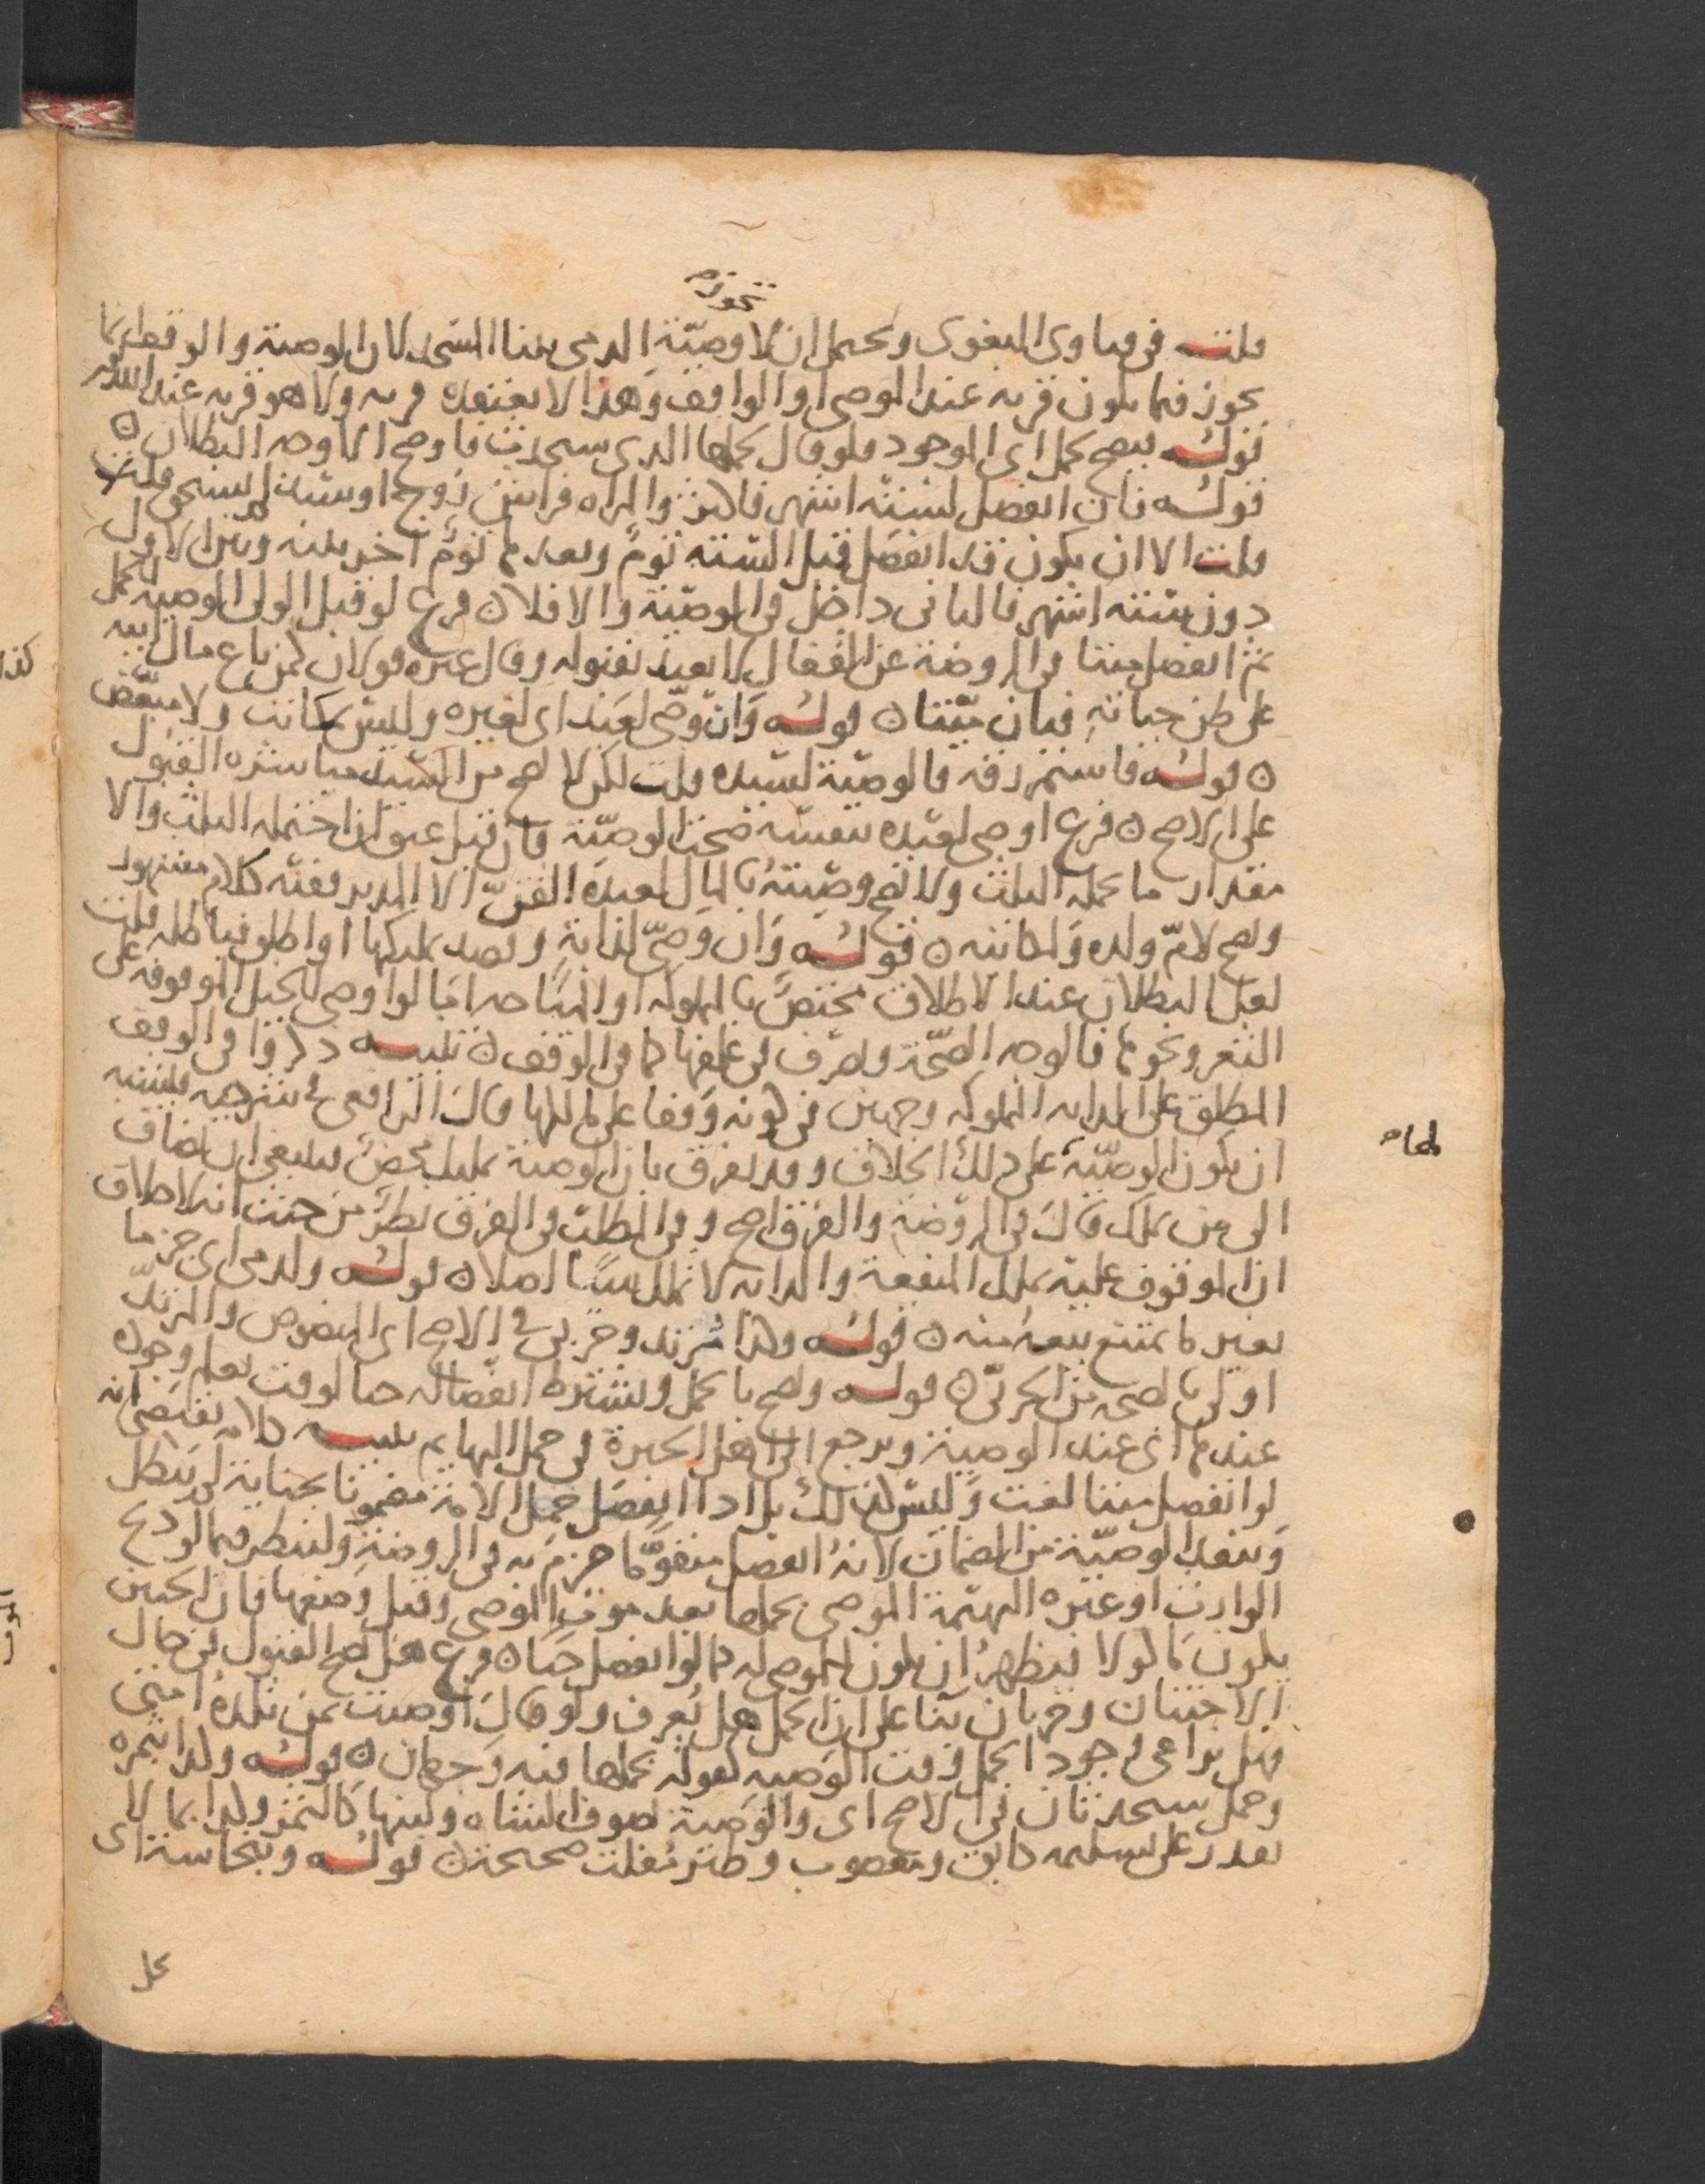 تجوز
قلت في فتاوى البغوى ويحتمل ان لا وصية الذمى ببنا المسجد لان الوصية والوقف انما
يجوز فيما يكون قربه عند الموصى او الواقف وهذا لا يعتقده قربه ولا هو قربه عند الله
قوله فيصح لحمل اى الموجود فلو قال لحملها الذى سيحدث فاوجه الاوجه البطلان ه
قوله فان انفصل لستة اشهر فاكثر والمراه فراش زوج او سيد لم يستحق قلت
قلت الا ان يكون قد انفصل قبل الستة توم وبعدها توم اخر بينه وبين الاول
دون ستة اشهر فالثانى داخل في الوصية والا فلا ه فرع لو قبل الولى الوصية للحمل
ثم انفصل ميتا في الروضة عن القفال لا يعتد بقبوله وقال غيره قولان كمن باع مال ابيه
على ظن حياته فبان ميتا ه قوله وان وصى لعبد اى لغيره وليس بمكاتب ولا مبعض
ه قوله فاستمر رقه فالوصية لسيده قلت لكن لا يصح من السيد مباشره القبول
على الاصح ه فرع اوصى لعبده بنفسه صحت الوصية فان قبل عتق ان احتمله الثلث والا
مقدار ما يحمله الثلث ولا تصح وصيته بالمال لعبده القن الا المدبر ففيه كلام مشهور
ويصح لام ولده ولمكاتبه ه قوله وان وصى لدابة وقصد تمليكها او اطلق فباطله قلت
لعل البطلان عند الاطلاق مختص بالمملوكه او المباحه اما لو اوصى للخيل الموقوفه على
الثغر ونحوها فالوجه الصحة ويصرف في علفها كما في الوقف ه تنبيه ذكروا في الوقف
المطلق على الدابه المملوكه وجهين في كونه وقفا على مالكها قال الرافعي في شرحيه فيشبه
ان يكون الوصية على ذلك الخلاف وقد يفرق بان الوصية تمليك محض فينبغي ان تضاف
الى من يملك قال في الروضة والفرق اصح وفي المطلب في الفرق نظر من حيث انه لا خلاف
ان الموقوف عليه يملك المنفعة والدابه لا تملك شيئا اصلا ه قوله ولذمى اى جزما
بغير ما يمتنع بيعه منه ه قوله وكذا مرتد وحربى في الاصح اى المنصوص والمرتد
اولى بالصحه من الحربى ه قوله ويصح بالحمل ويشترط انفصاله حيا لوقت يعلم وجوده
عندها اى عند الوصية ويرجع الى اهل الخبرة في حمل البهايم تنبيه كلامه يقتضى انه
لو انفصل ميتا لغت وليس كذلك بل اذا انفصل حمل الامة مضمونا بجناية لم تبطل
وتنفذ الوصية من الضمان لانه انفصل متقوما جزم به في الروضة ولينظر فيما لو ذبح
الوارث او غيره البهيمة الموصى بحملها بعد موت الموصى وقبل وضعها فان الجنين
يكون ما كولا فيظهر ان يكون للموصى له كما لو انفصل حيا ه فرع هل يصح القبول في حال
الاجتنان وجهان بنا على ان الحمل هل يعرف ولو قال اوصيت بمن تلده امتى
فهل يراعى وجود الحمل وقت الوصيه كقوله بحملها فيه وجهان ه قوله وكذا بثمره
وحمل سيحدثان في الاصح اى والوصية بصوف الشاه ولبنها كالثمر وكذا بما لا
يقدر على تسليمه كآبق ومغصوب وطير مفلت صحيحه ه قوله وبنجاسة اى
يحل